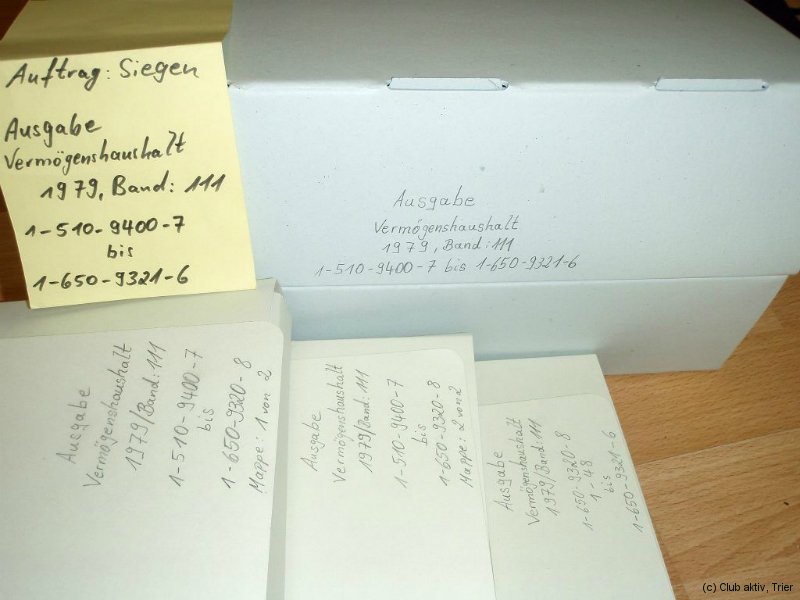 Auftrag: Siegen
Ausgabe
Vermögenshaushalt
1979, Band: 111
1-510-9400-7
bis
1-650-9321-6
Ausgabe
Vermögenshaushalt
1979, Band: 111
1-510-9400-7 bis 1-650-9321-6
Ausgabe
Vermögenshaushalt
1979/Band: 111
1-510-9400-7
bis
1-650-9320-8
Mappe: 1 von 2
Ausgabe
Vermögenshaushalt
1979/Band: 111
1-510-9400-7
bis
1-650-9320-8
Mappe: 2 von 2
Ausgabe
Vermögenshaushalt
1979/Band: 111
1-650-9320-8
1-48
bis
1-650-9321-6
(c) Club aktiv, Trier